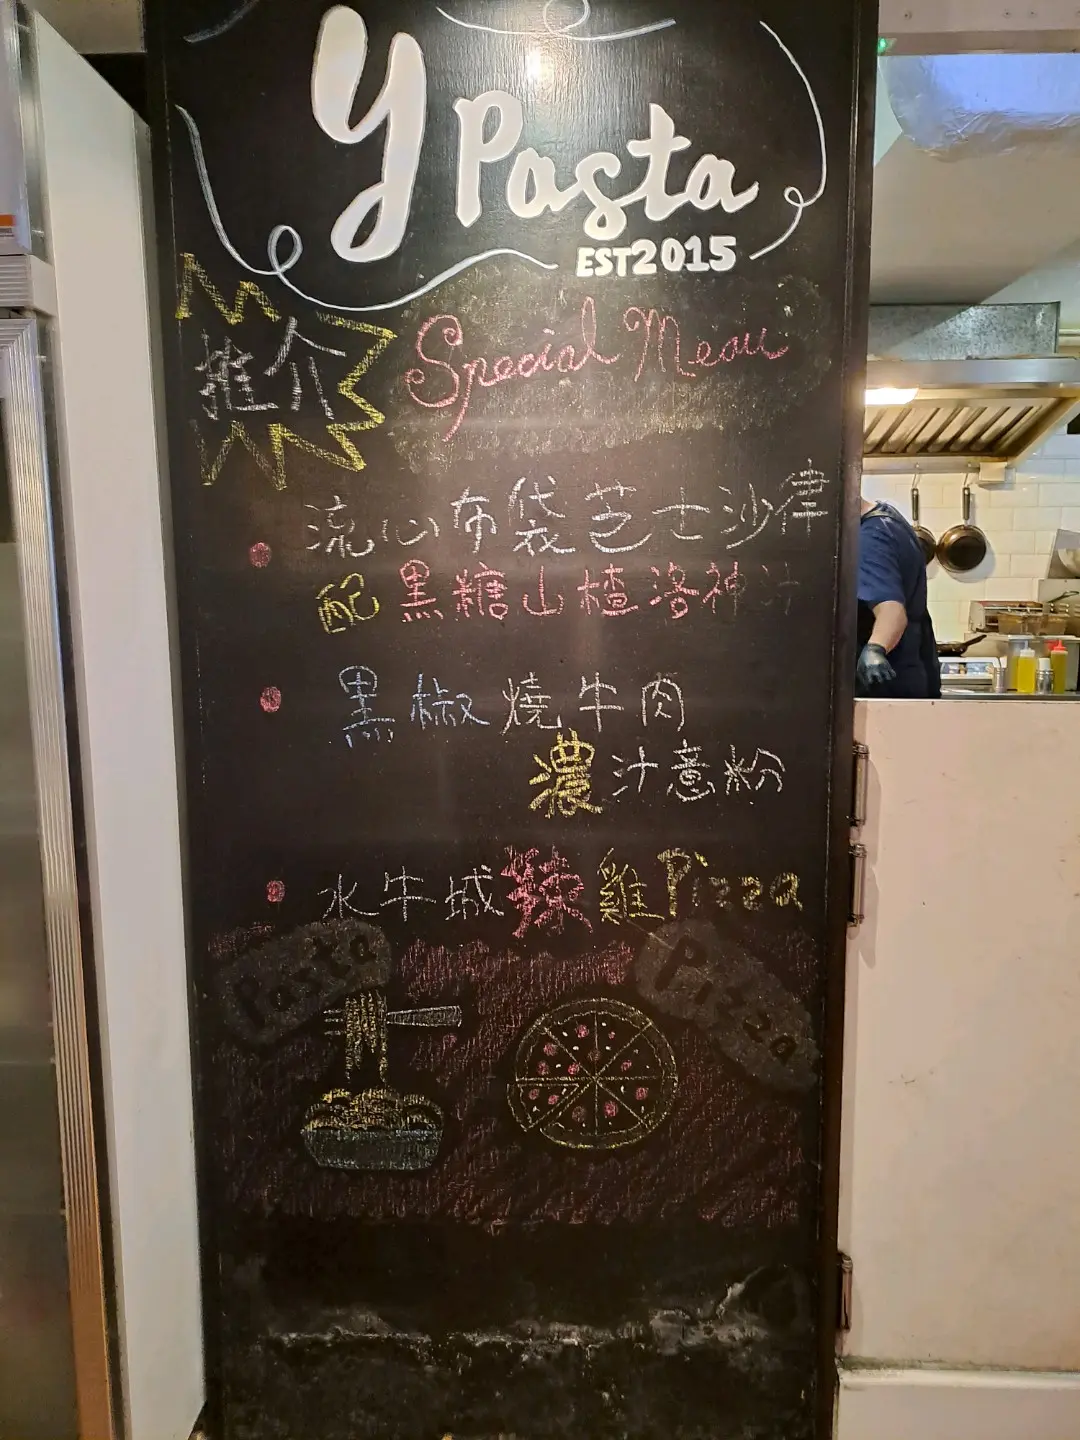 y Pasta
EST2015
推介
Special Menu
流心布袋芝士沙律
配黑糖山楂洛神汁
黑椒燒牛肉
濃汁意粉
水牛城辣雞Pizza
Pasta
Pizza